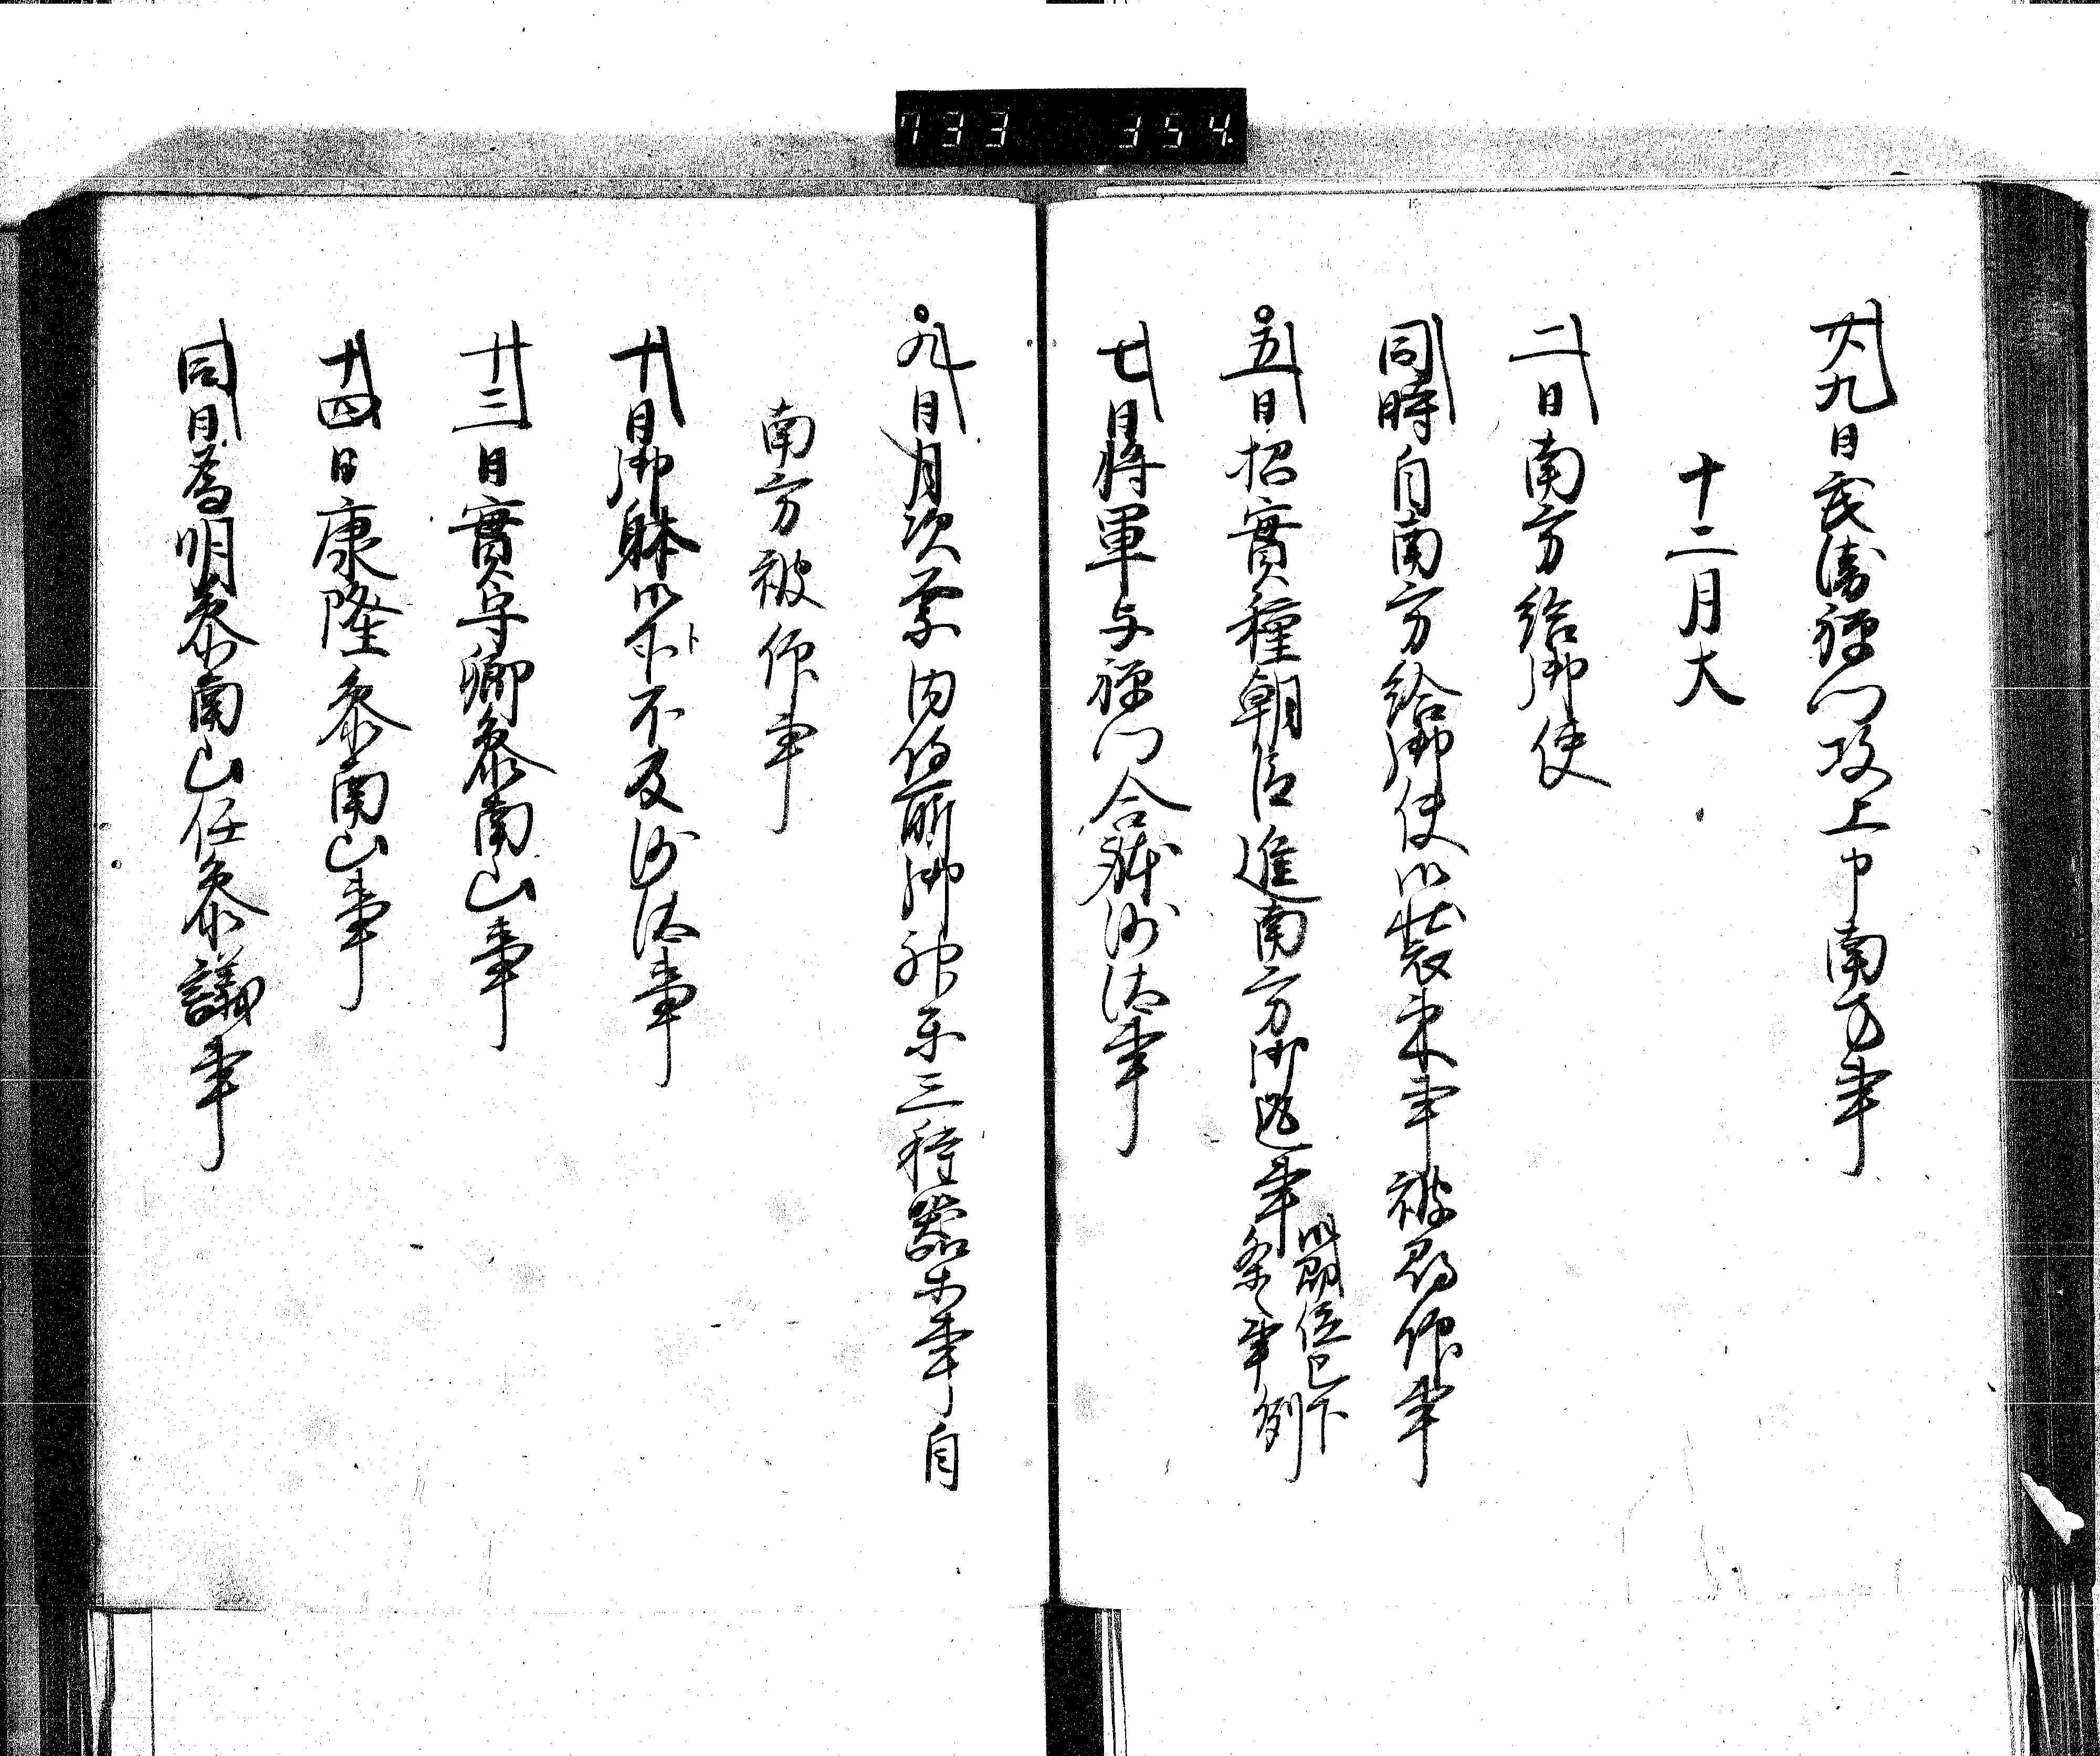 733 354
廿九日義詮禅門攻上申南方事
十二月大
二日南方給御使
同時自南方給御使以装束事被尋仰事
五日招實種朝臣進南方御返事以前即位已下条々事例
七日将軍与禅門合躰沙汰事
九日月次祭内侍所御神楽三種器等事自
南方被仰事
十日御躰御卜不及沙汰事
十三日實守卿参南山事
十四日康隆参南山事
同日為明参南山任参議事